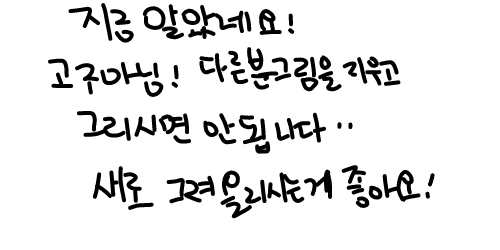 지금 알았네요!
고구마님! 다른분그림을 지우고
그리시면 안됩니다..
새로 그려올리시는게 좋아요!